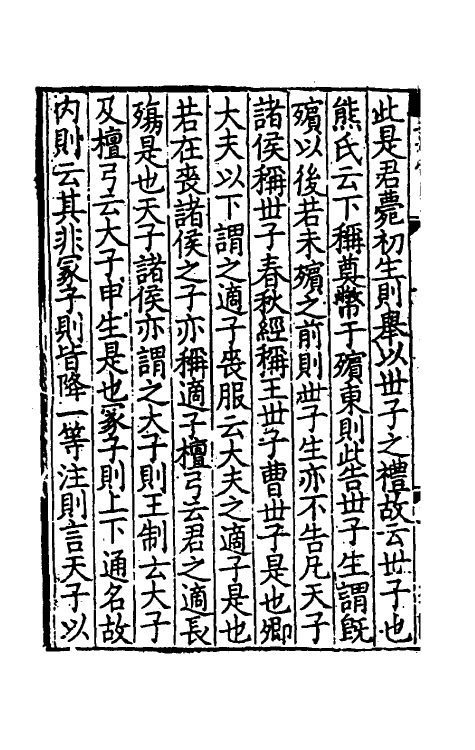 此是君薨初生則舉以丗子之禮故云丗子也
熊氏云下稱奠幣于殯東則此告丗子生謂旣
殯以後若未殯之前則丗子生亦不告凡天子
諸侯稱丗子春秋經稱王丗子曹丗子是也卿
大夫以下謂之適子喪服云大夫之適子是也
若在喪諸侯之子亦稱適子檀弓云君之適長
殤是也天子諸侯亦謂之大子則王制云大子
及檀弓云大子申生是也冢子則上下通名故
内則云其非冢子則皆降一等注則言天子以